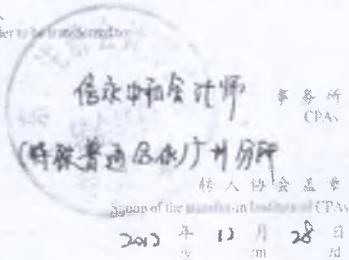 信永中和会计师 事务所
CPAs
(特殊普通合伙)广州分所
转入协会盖章
Stamp of the transfer-in Institute of CPAs
2012 年 12 月 28 日
/y /m /d